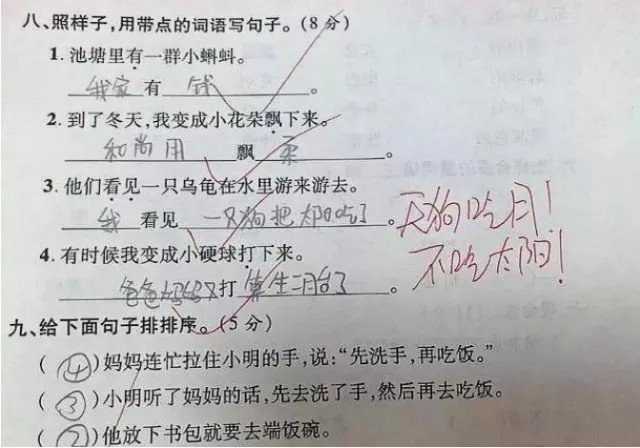 八、照样子,用带点的词语写句子。(8分)
1. 池塘里有一群小蝌蚪。
我家 有 钱 。
2. 到了冬天,我变成小花朵飘下来。
和尚用 飘 柔 。
3. 他们看见一只乌龟在水里游来游去。
我 看见 一只狗把太阳吃了 。
天狗吃月!
不吃太阳!
4. 有时候我变成小硬球打下来。
爸爸妈妈又打算生二胎了 。
九、给下面句子排排序。(5分)
(④)妈妈连忙拉住小明的手,说:“先洗手,再吃饭。”
(③)小明听了妈妈的话,先去洗了手,然后再去吃饭。
(②)他放下书包就要去端饭碗。